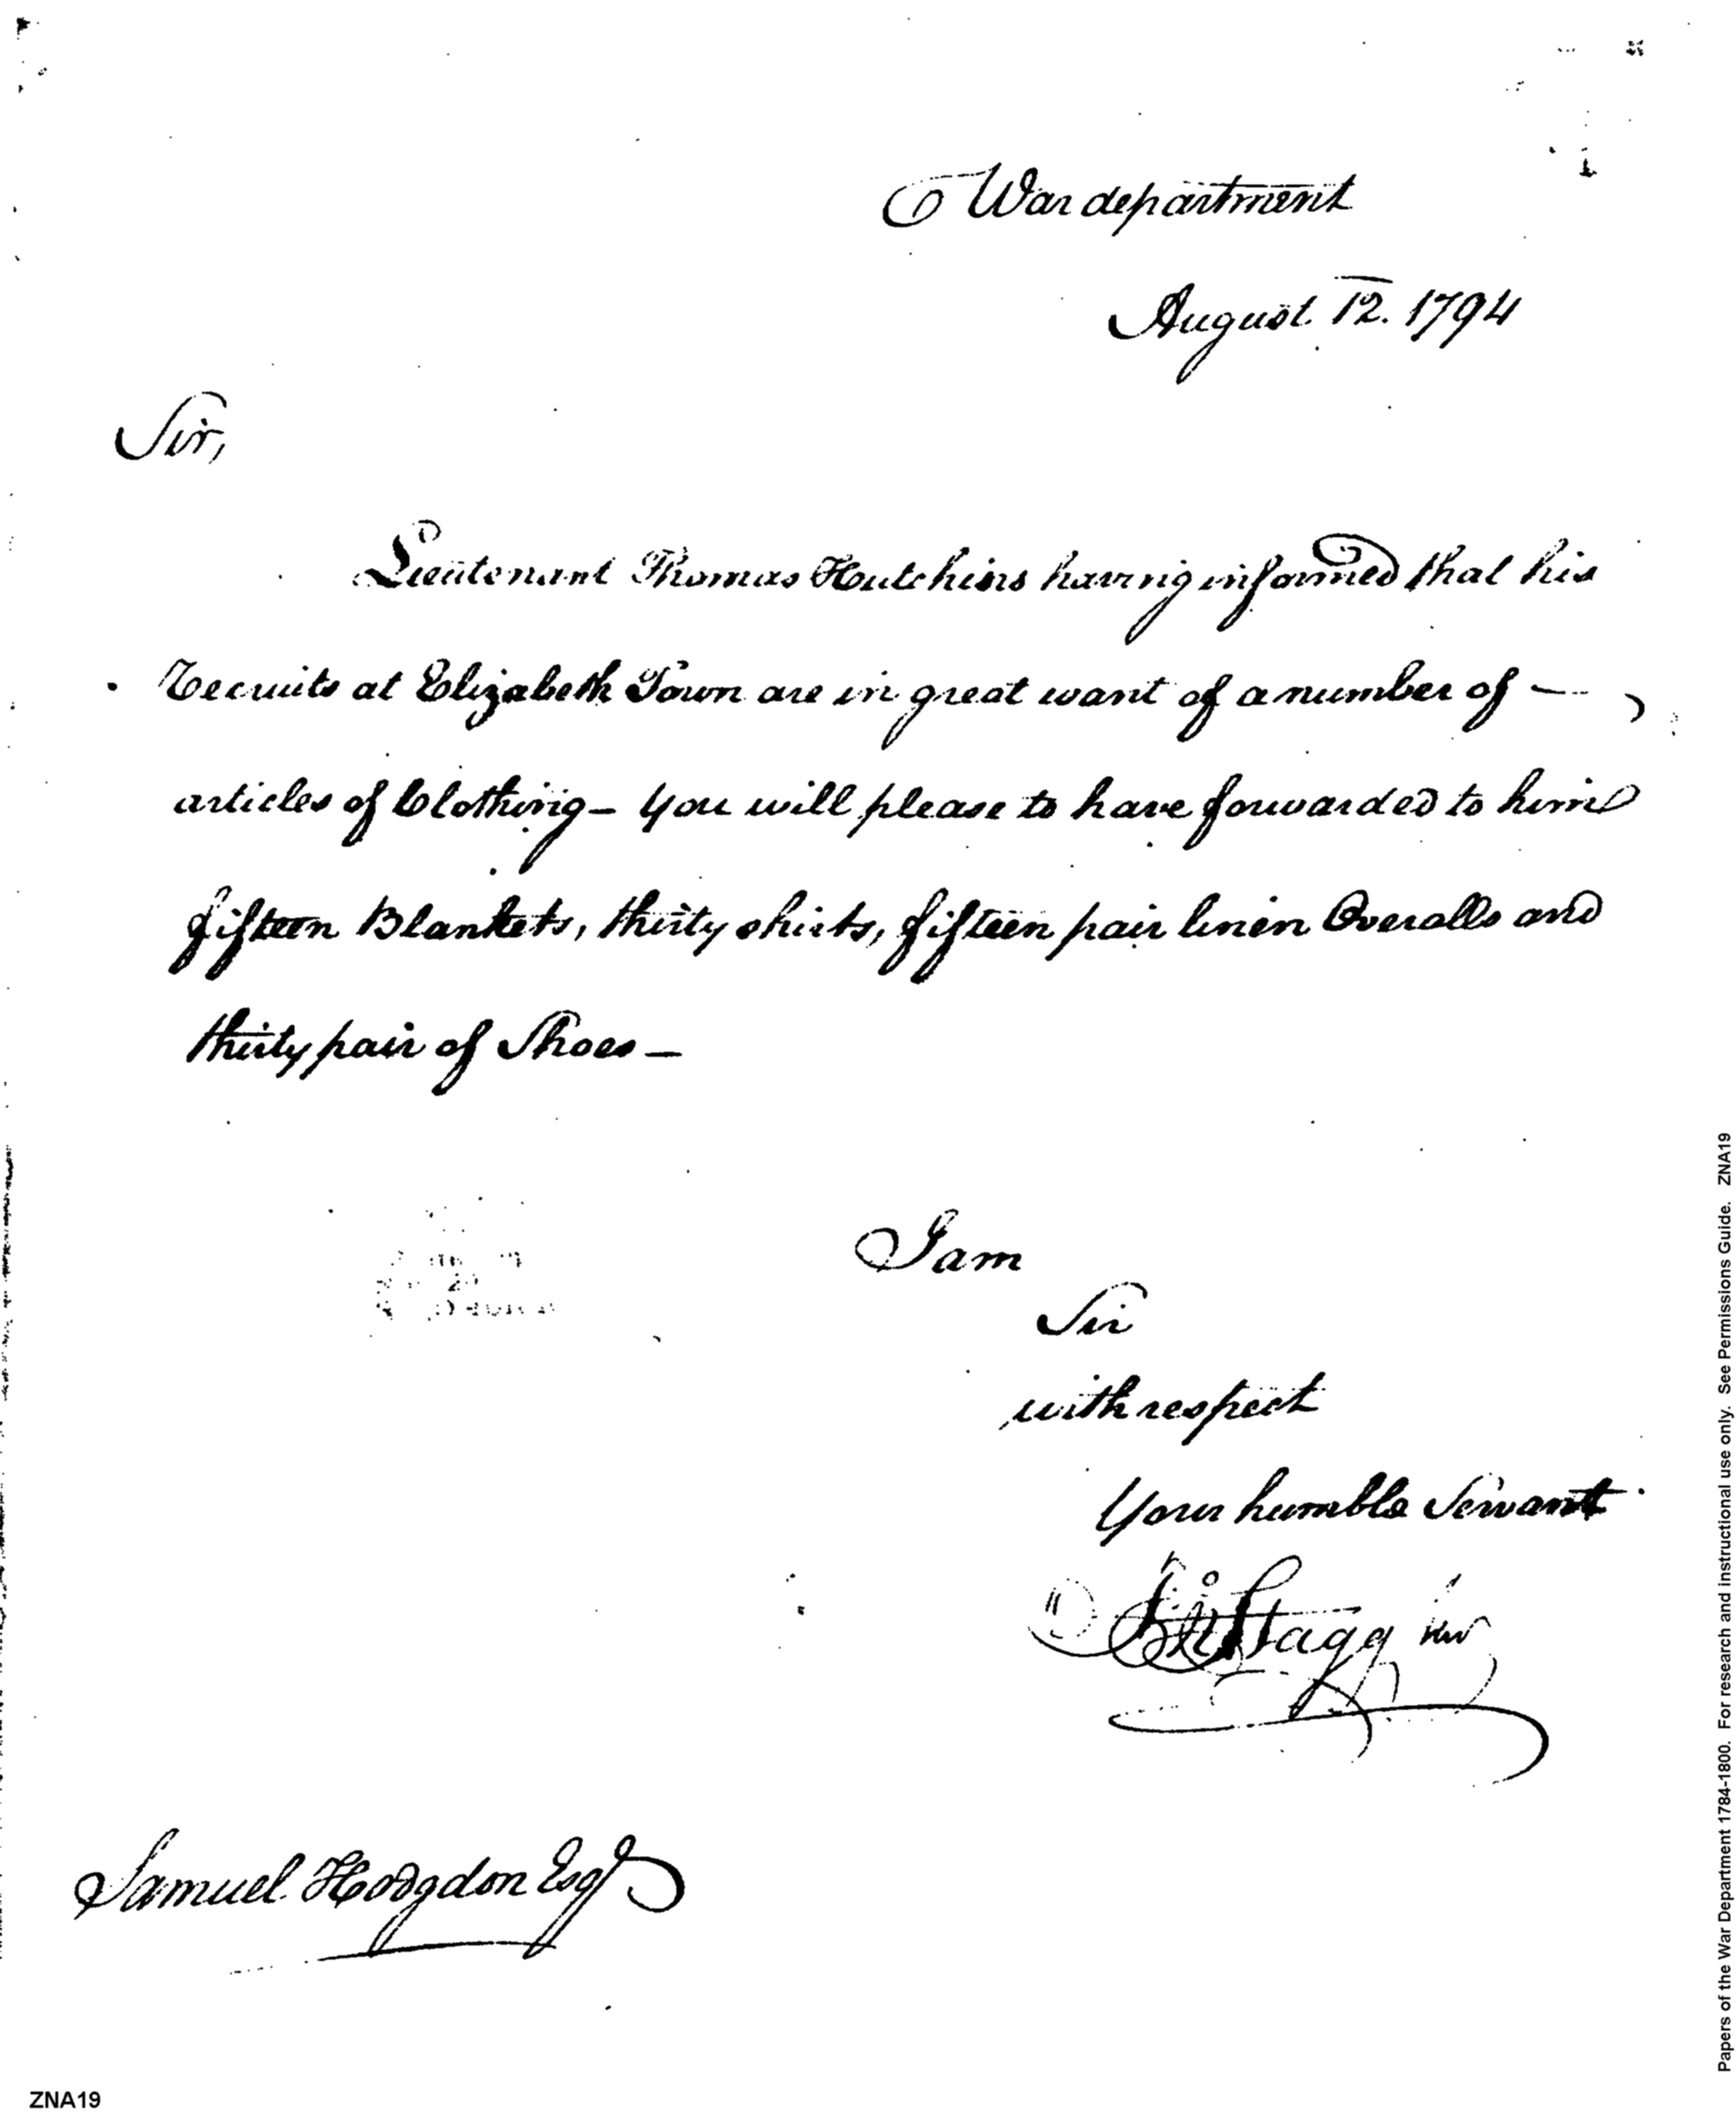 War department
August 12. 1794
Sir,
Lieutenant Thomas Hutchins having informed that his
recruits at Elizabeth Town are in great want of a number of —
articles of Clothing — you will please to have forwarded to him
fifteen Blankets, thirty shirts, fifteen pair linen Overalls and
thirty pair of Shoes —
I am
Sir
with respect
Your humble Servant
Jno Stagg Jnr
Samuel Hodgdon Esqr
ZNA19
Papers of the War Department 1784-1800. For research and instructional use only. See Permissions Guide. ZNA19